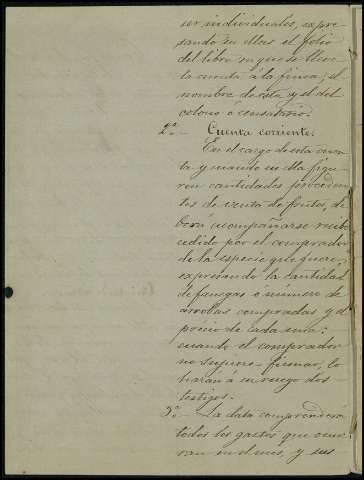 ser individuales, expre-
sando en ellas el folio
del libro en que se lleve
la cuenta á la finca; el
nombre de esta y el del
colono ó censatario.
2ª.- Cuenta corriente.
En el cargo de esta cuen-
ta y cuando en ella figu-
ren cantidades proceden-
tes de venta de frutos, de-
berá acompañarse recibo
cedido por el comprador
de la especie que fuere,
expresando la cantidad
de fanegas ó número de
arrobas compradas y el
precio de cada una:
cuando el comprador
no supiere firmar, lo
harán á su ruego dos
testigos.
La data comprenderá
todos los gastos que ocur-
ran en el mes, y sus